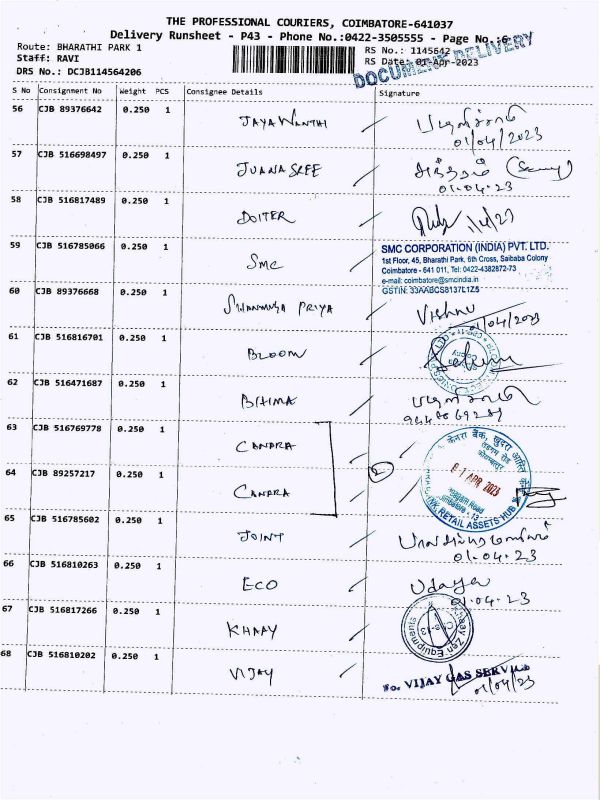 THE PROFESSIONAL COURIERS, COIMBATORE-641037
Delivery Runsheet - P43 - Phone No.:0422-3505555 - Page No.:6
Route: BHARATHI PARK 1
RS No.: 1145642
Staff: RAVI
RS Date: 01-Apr-2023
DRS No.: DCJB114564206
DOCUMENT DELIVERY
S No Consignment No Weight PCS Consignee Details Signature
56 CJB 89376642 0.250 1 JAYAWANTHI
01/04/2023
57 CJB 516698497 0.250 1 JUANA SREE
01.04.23
58 CJB 516817489 0.250 1 DOITER
59 CJB 516785066 0.250 1 SMC
SMC CORPORATION (INDIA) PVT. LTD.
1st Floor, 45, Bharathi Park, 6th Cross, Saibaba Colony
Coimbatore - 641 011, Tel: 0422-4382872-73
e-mail: coimbatore@smcindia.in
GSTIN: 33AABCS8137L1Z5
60 CJB 89376668 0.250 1 SHANMUGA PRIYA Vishnu
01/04/2023
61 CJB 516816701 0.250 1 BLOOM
62 CJB 516471687 0.250 1 BHIMA
63 CJB 516769778 0.250 1 CANARA
केनरा बैंक, खुदरा आस्ति
2
01 APR 2023
64 CJB 89257217 0.250 1 CANARA
RETAIL ASSETS HUB
65 CJB 516785602 0.250 1 JOINT
01.04.23
66 CJB 516810263 0.250 1 ECO Udaya
01.04.23
67 CJB 516817266 0.250 1 KHAAY
68 CJB 516810202 0.250 1 VIJAY
For VIJAY GAS SERVICE
01/04/23